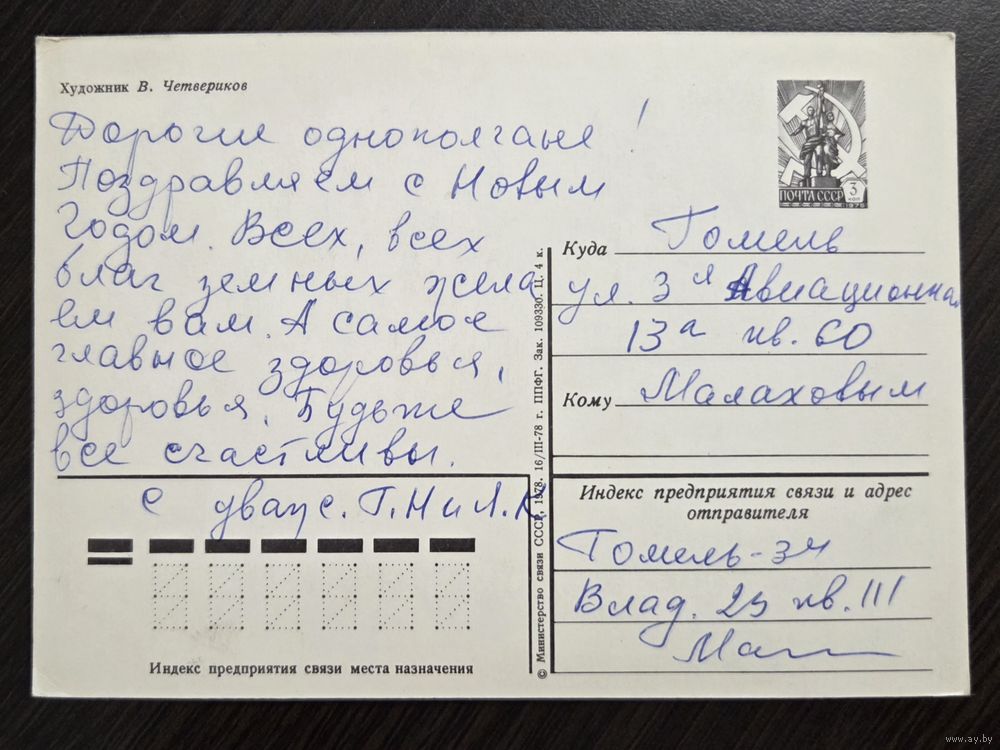 Художник В. Четвериков
Дорогие однополгане!
Поздравляем с Новым
Годом. Всех, всех
благ земных жела
ем вам. А самое
главное здоровья,
здоровья. Будьте
все счастливы.
с уваж с. Г.Н и Л.К
ПОЧТА СССР 3 КОП
1976
Куда Гомель
ул. 3я Авиационная
13а кв. 60
Кому Малаховым
Индекс предприятия связи и адрес
отправителя
Гомель-34
Влад. 23 кв. 111
Индекс предприятия связи места назначения
© Министерство связи СССР, 1978. 16/III-78 г. ППФГ. Зак. 109330. Ц. 4 к.
www.ay.by